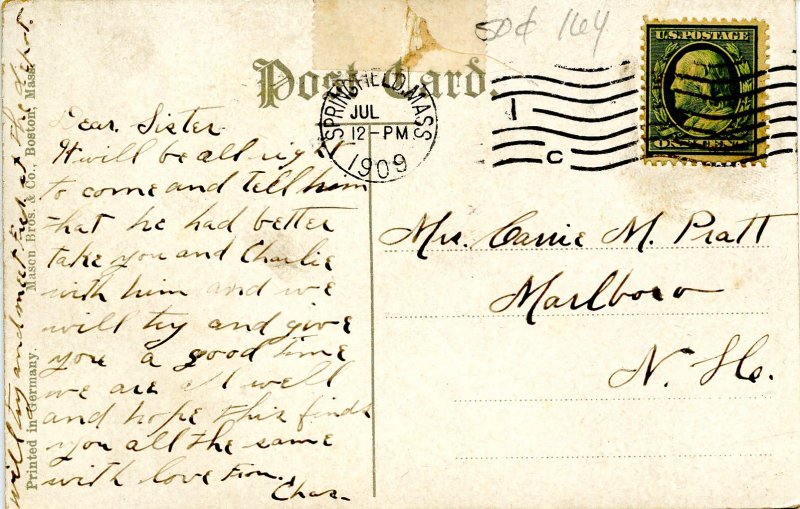 50¢ 164
U.S.POSTAGE
ONE CENT
Post Card.
SPRINGFIELD, MASS.
JUL
12-PM
1909
1
C
Dear. Sister
It will be all right
to come and tell him
that he had better
take you and Charlie
with him and we
will try and give
you a good time
we are all well
and hope this finds
you all the same
with love from.
Chas-
will try and meet at the depot.
Mrs. Carrie M. Pratt
Marlboro
N. H.
Printed in Germany. Mason Bros. & Co., Boston, Mass.